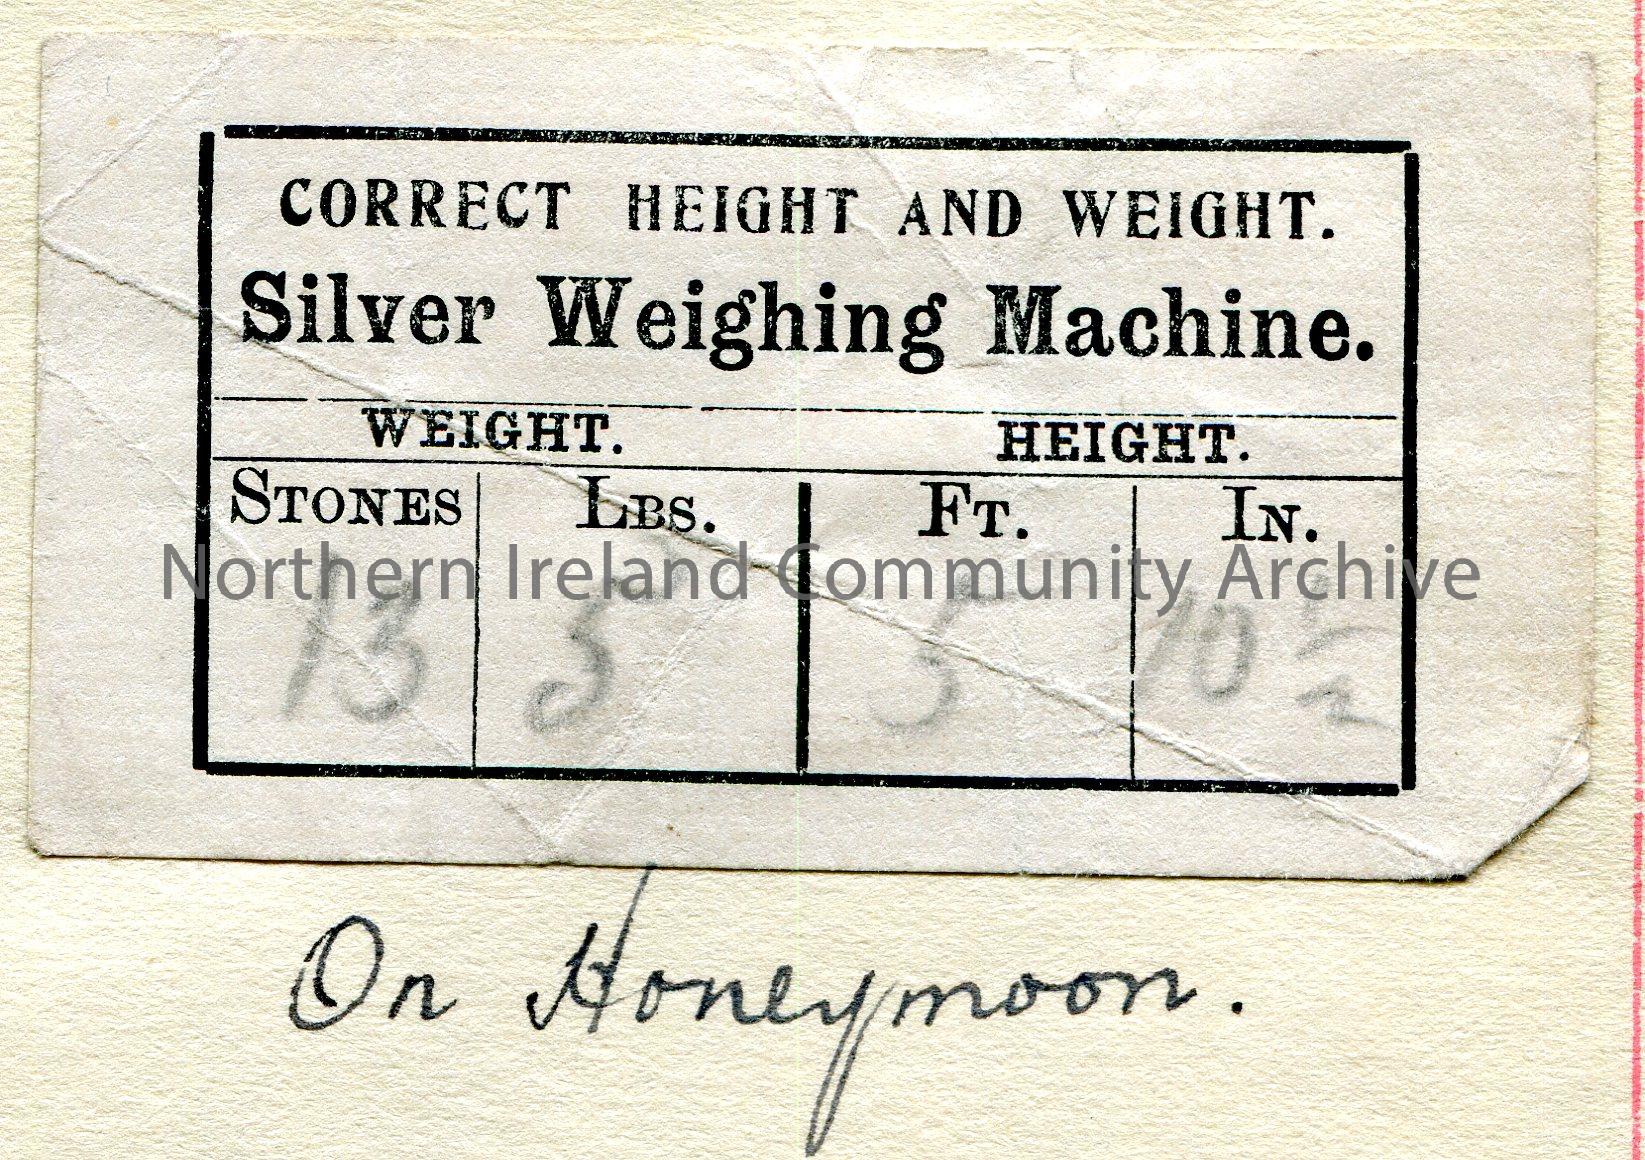 CORRECT HEIGHT AND WEIGHT.
Silver Weighing Machine.
WEIGHT. HEIGHT.
STONES LBS. FT. IN.
Northern Ireland Community Archive
13 5 5 10 1/2
On Honeymoon.